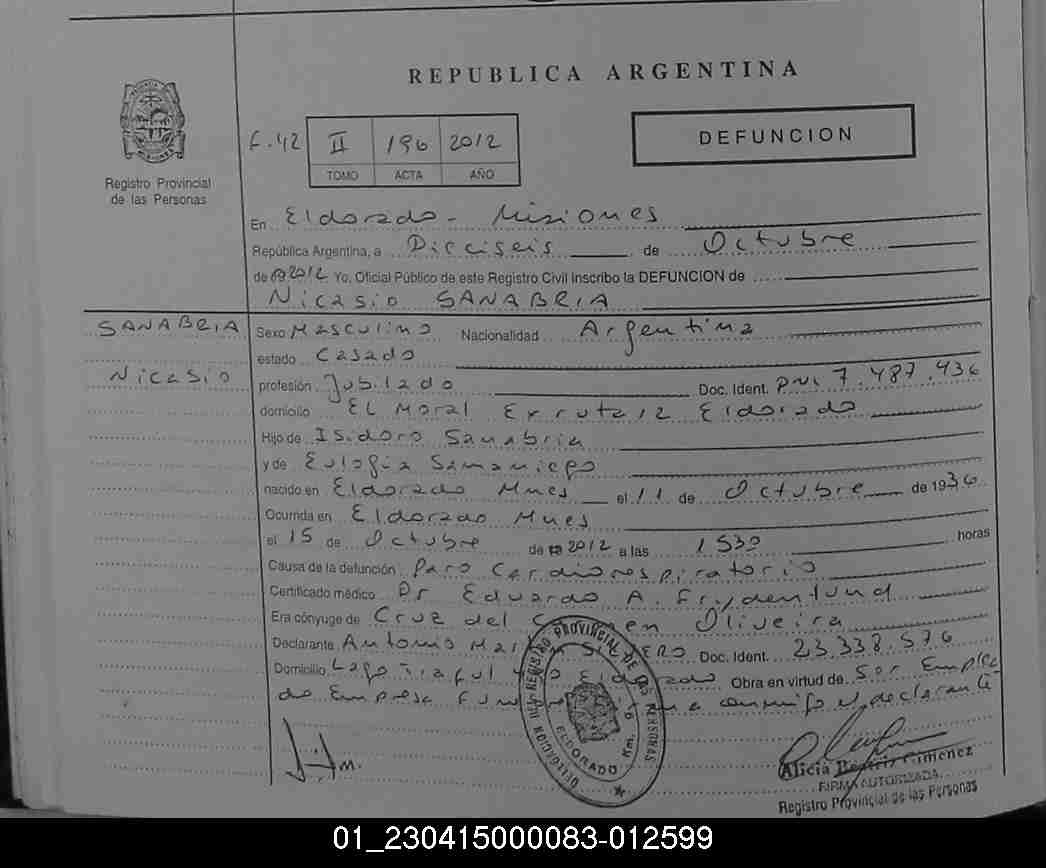 REPUBLICA ARGENTINA
Registro Provincial
de las Personas
F.42 II 196 2012
TOMO ACTA AÑO
DEFUNCION
En Eldorado - Misiones
República Argentina, a Dieciseis de Octubre
de 2012 Yo, Oficial Público de este Registro Civil Inscribo la DEFUNCION de
Nicasio SANABRIA
SANABRIA
Nicasio
Sexo Masculino Nacionalidad Argentina
estado Casado
profesión Jubilado Doc. Ident. DNI 7.487.436
domicilio EL Moral Exruta 12 Eldorado
Hijo de Isidoro Sanabria
y de Eulogia Samaniego
nacido en Eldorado Mnes el 11 de Octubre de 1936
Ocurrida en Eldorado Mnes
el 15 de Octubre de 2012 a las 1530 horas
Causa de la defunción Paro Cardiorespiratorio
Certificado médico Dr Eduardo A. Frydenlund
Era cónyuge de Cruz del Oliveira
Declarante Antonio Doc. Ident. 23.338.576
Domicilio Lago Obra en virtud de Ser Emplea
do Empresa conmigo el declarante
DELEGACION DEL REGISTRO PROVINCIAL DE LAS PERSONAS
ELDORADO Km.
Alicia Beatriz Gimenez
FIRMA AUTORIZADA
Registro Provincial de las Personas
01_230415000083-012599